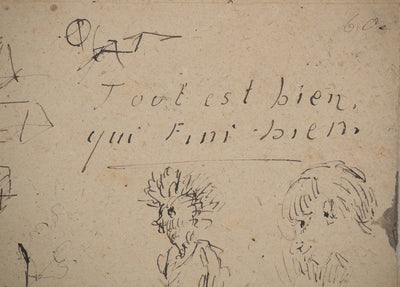 Tout est bien,
qui Fini bien.